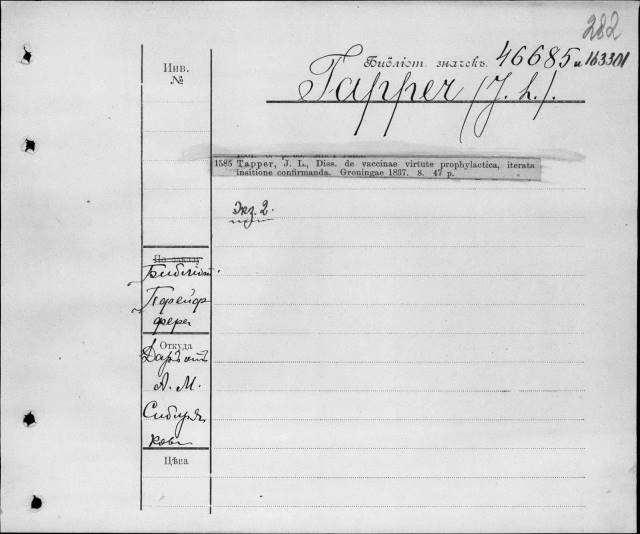 282
Библіот. значекъ. 46685 и 163301
Инв.
№
Tapper (J. L.).
1585 Tapper, J. L., Diss. de vaccinae virtute prophylactica, iterata
insitione confirmanda. Groningae 1837. 8. 47 p.
Экз. 2.
По заказу
Библіот.
Пфейф
фера
Откуда
Даръ отъ
А. М.
Сибиря
кова
Цѣна